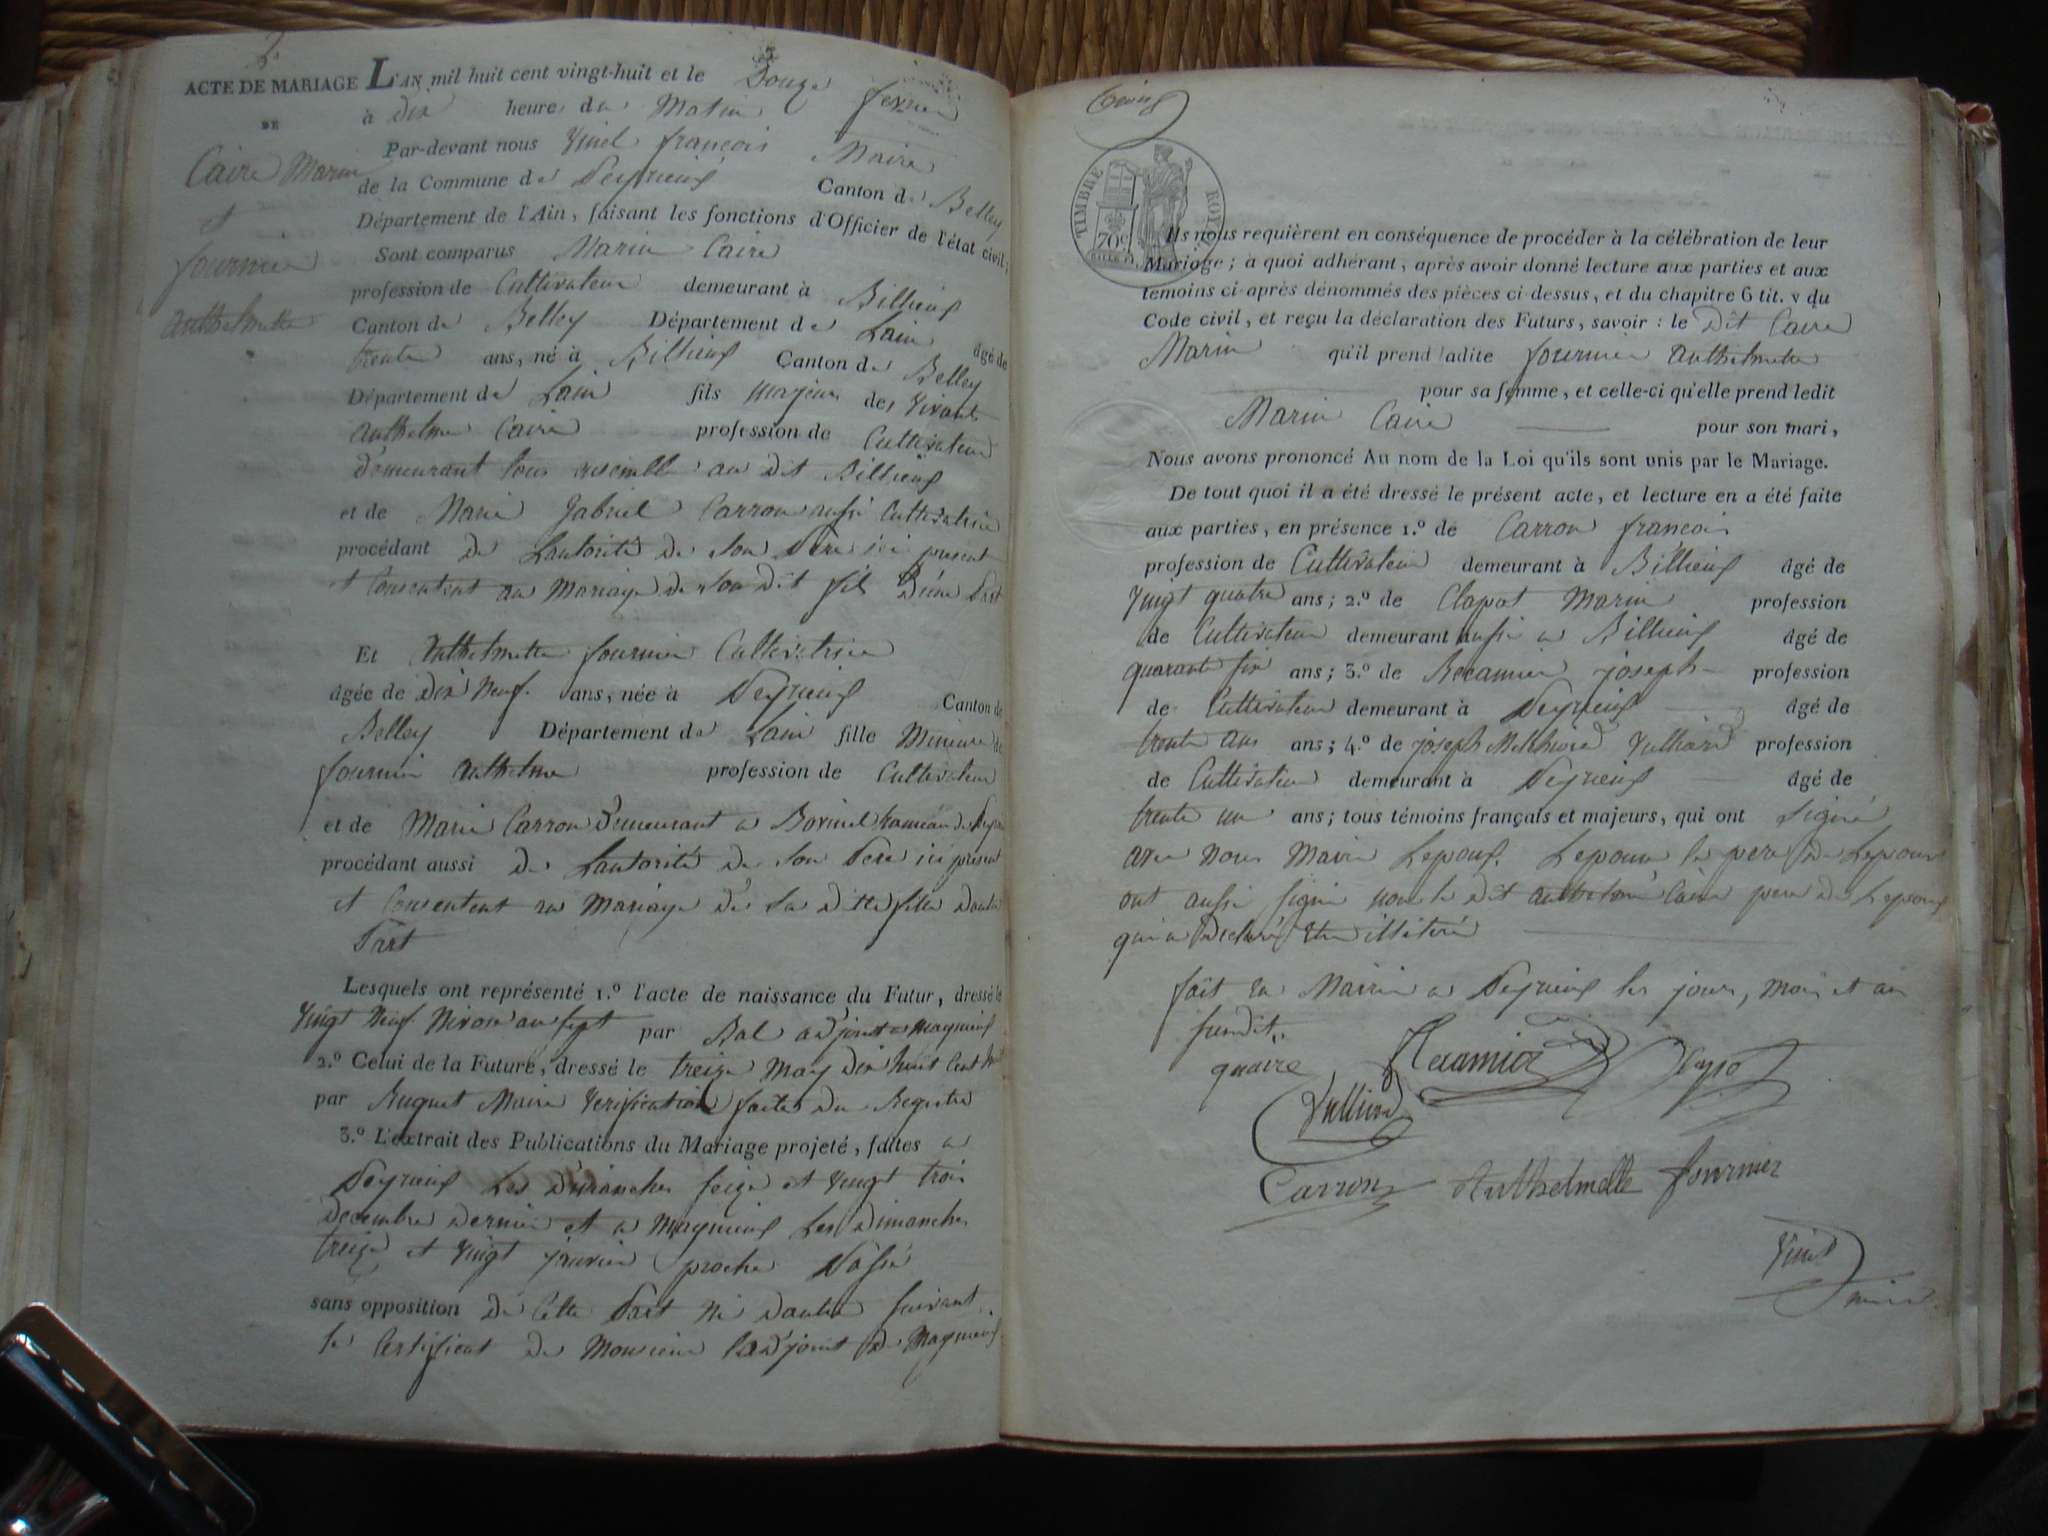 2.
ACTE DE MARIAGE L'AN mil huit cent vingt-huit et le Douze fevrier
à dix heure du Matin
DE
Par-devant nous Vinel françois Maire
Caire Marin
de la Commune de Peyrieux Canton de Belley
et
Département de l'Ain, faisant les fonctions d'Officier de l'état civil;
fournier
Sont comparus Marin Caire
profession de Cultivateur demeurant à Billieux
anthelmette
Canton de Belley Département de Lain âgé de
trente ans, né à Billieux Canton de Belley
Département de Lain fils majeur de, vivant
anthelme Caire profession de Cultivateur
demeurant tous ensemble au dit Billieux
et de Marie Gabriel Carron aussi Cultivatrice
procédant de Lautorité de son Pere ici present
et Consentent au Mariage de son dit fils Dune Part
Et Anthelmette fournier Cultivatrice
âgée de dix Neuf ans, née à Peyrieux Canton de
Belley Département de Lain fille Mineure de
fournier anthelme profession de Cultivateur
et de Marie Carron Demeurant a hameau de
procédant aussi de Lautorité de son Pere ici present
et Consentent au Mariage de sa ditte fille Dautre
Part
Lesquels ont représenté 1.º l'acte de naissance du Futur, dressé le
Vingt Neuf Nivose an sept par Bal adjoint a magnieux
2.º Celui de la Future, dressé le treize May dix huit Cent huit
par Huguet Maire Verification faite du Registre
3.º L'extrait des Publications du Mariage projeté, faites a
Peyrieux Les Dimanches seize et Vingt trois
Decembre Dernier et a magnieux Les Dimanches
treize et Vingt janvier proche Passé
sans opposition de Cette Part ni Dautre suivant
le Certificat de Monsieur Ladjoint de Magnieux
TIMBRE ROYAL
70c
Ils nous requièrent en conséquence de procéder à la célébration de leur
Mariage; à quoi adhérant, après avoir donné lecture aux parties et aux
témoins ci-après dénommés des pièces ci-dessus, et du chapitre 6 tit. v du
Code civil, et reçu la déclaration des Futurs, savoir: le Dit Caire
Marin qu'il prend ladite fournier anthelmette
pour sa femme, et celle-ci qu'elle prend ledit
Marin Caire pour son mari,
Nous avons prononcé Au nom de la Loi qu'ils sont unis par le Mariage.
De tout quoi il a été dressé le présent acte, et lecture en a été faite
aux parties, en présence 1.º de Carron francois
profession de Cultivateur demeurant à Billieux âgé de
Vingt quatre ans; 2.º de Clapot Marin profession
de Cultivateur demeurant aussi a Billieux âgé de
quarante six ans; 3.º de Recamier joseph profession
de Cultivateur demeurant à Peyrieux âgé de
trente ans ans; 4.º de joseph Melchior Vulliard profession
de Cultivateur demeurant à Peyrieux âgé de
trente un ans; tous témoins français et majeurs, qui ont signé
avec nous Maire Lepoux, Lepouse le pere de Lepouse
ont aussi signé non le dit anthelme Caire pere de Lepoux
qui a declaré Etre illiteré
fait en Mairie a Peyrieux les jour, mois et an
susdit.
quaire Recamier Clapot
Vulliard
Carron Anthelmelle fournier
Vinel
maire